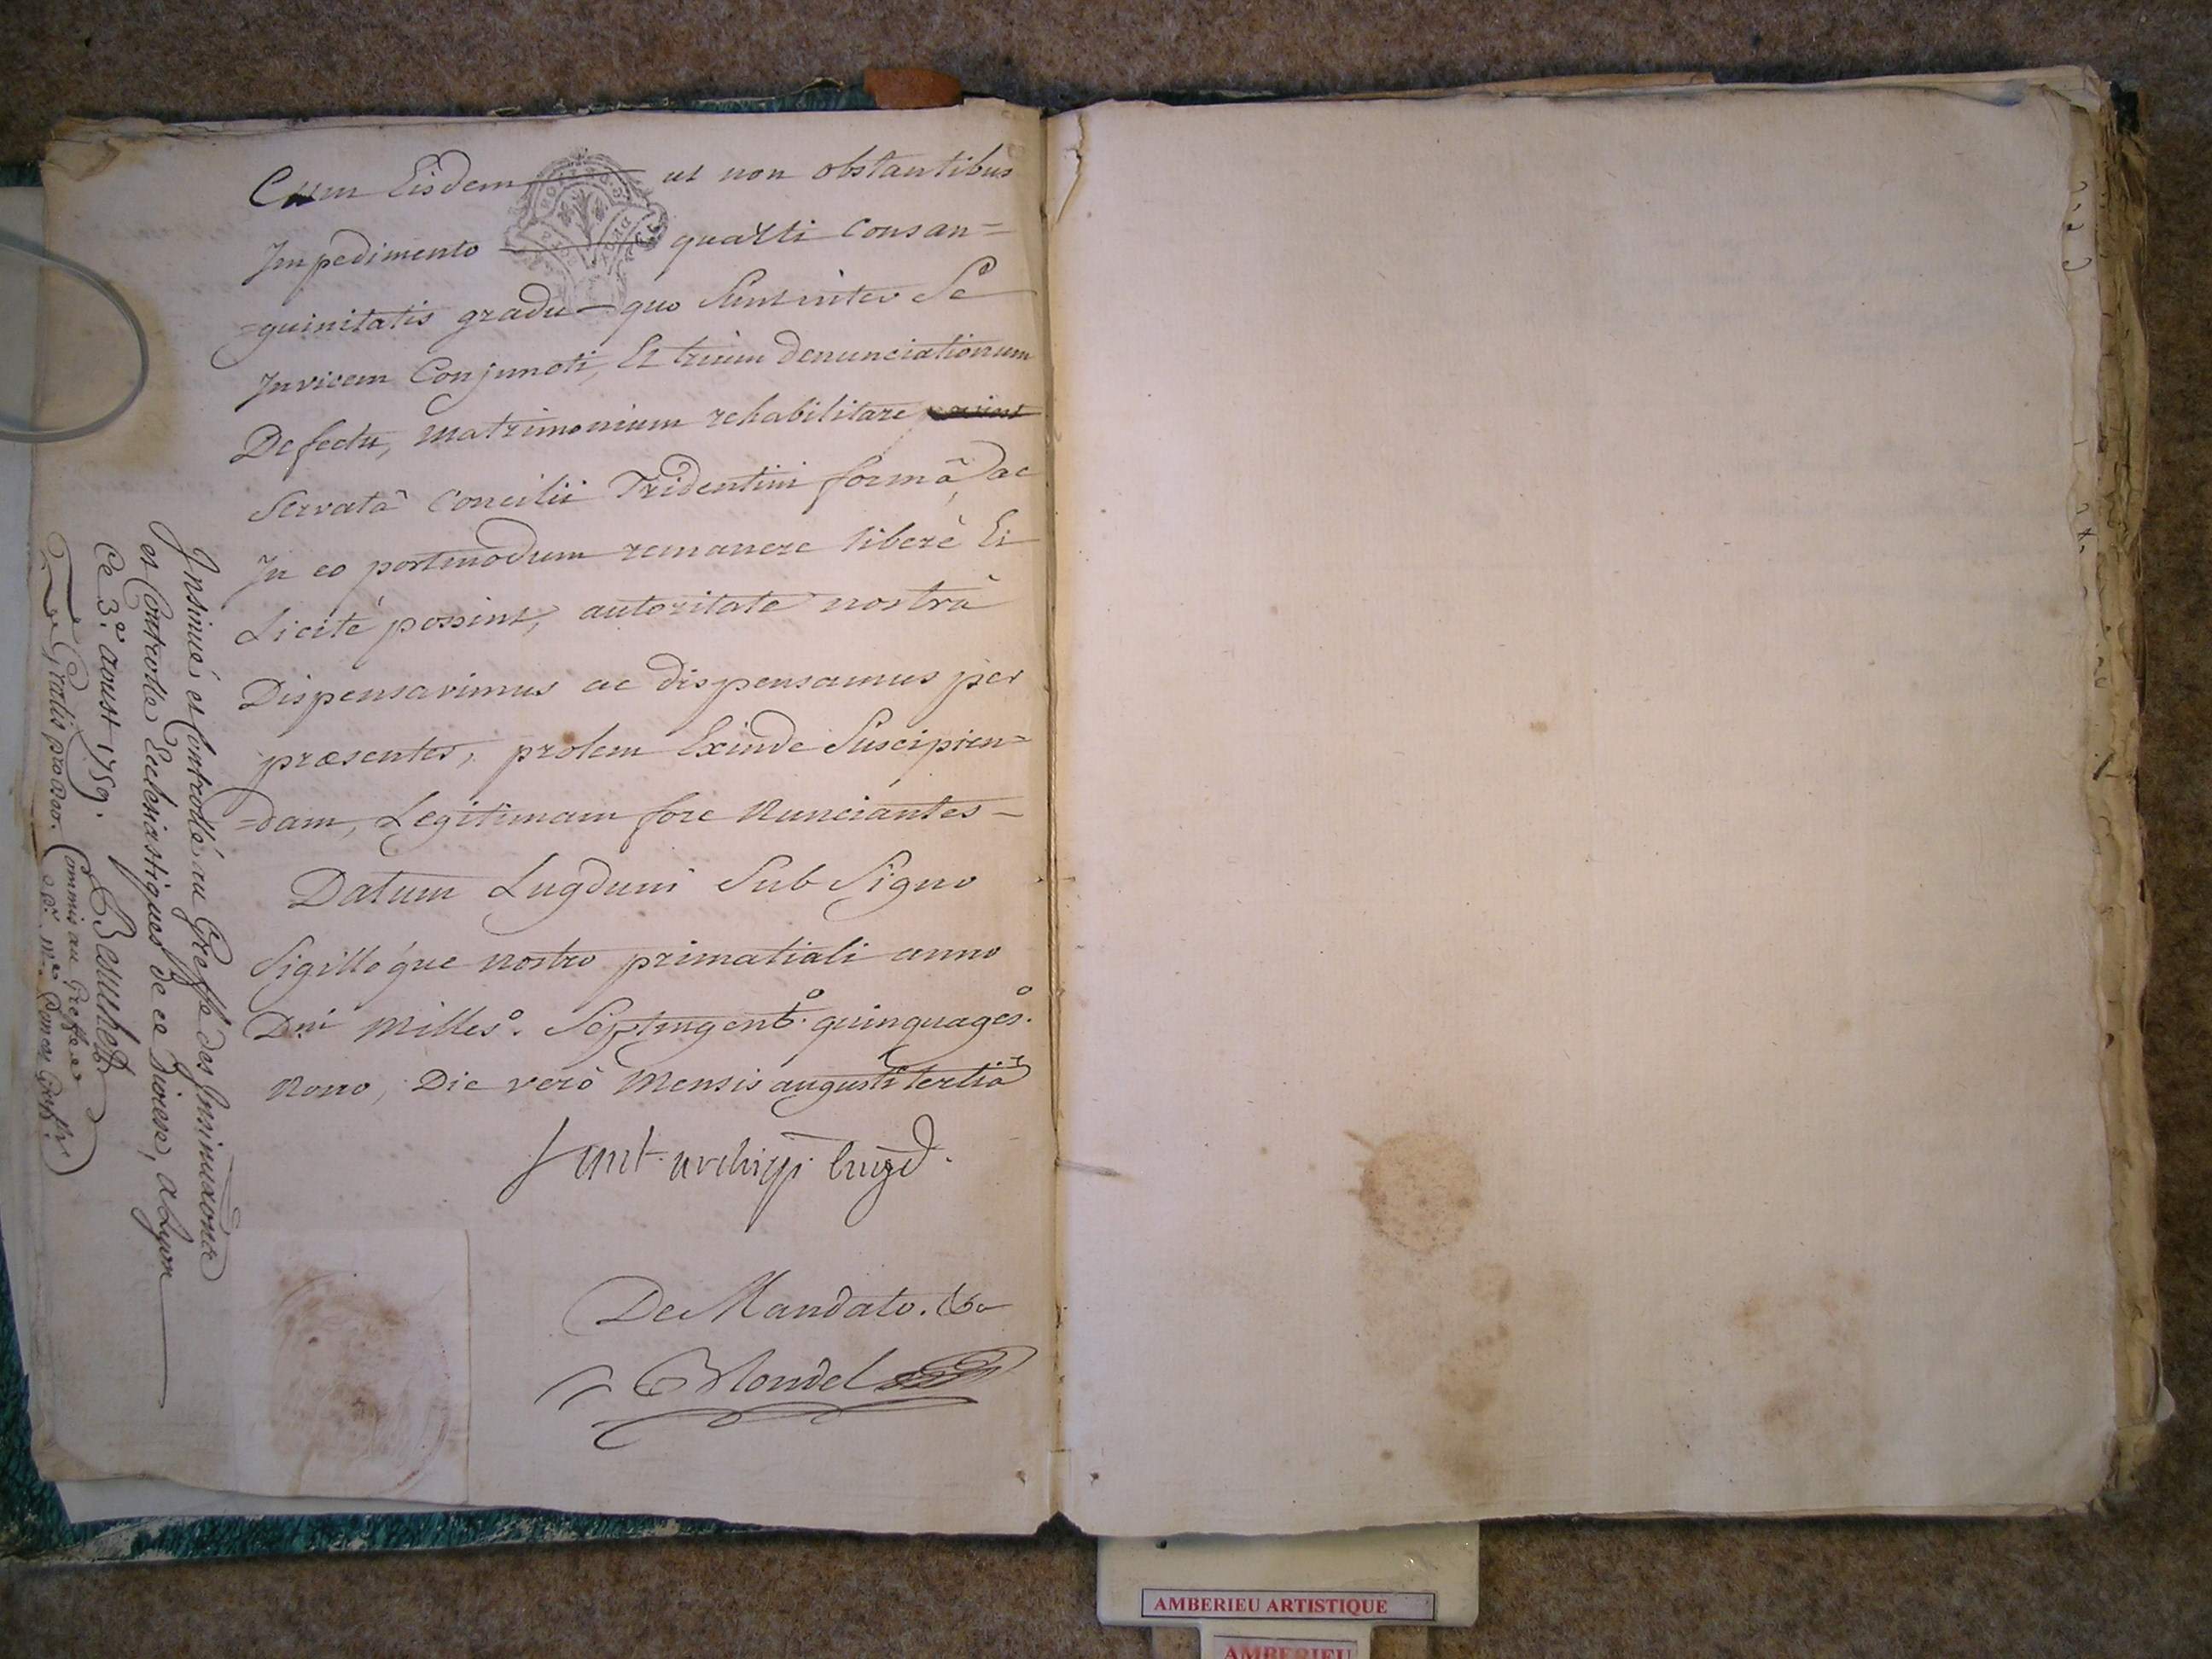 Cum Eisdem ut non obstantibus
Impedimento quarti Consan=
=guinitatis gradu quo Sunt inter Se
Invicem Conjuncti, Et trium Denunciationum
Defectu, Matrimonium rehabilitare
Servatâ Concilii Tridentini formâ, ac
In eo postmodum remanere liberè Et
Licitè possint, autoritate nostrâ
Dispensavimus ac dispensamus per
præsentes, prolem Exinde Suscipien=
=dam, Legitimam fore Nunciantes
Datum Lugduni Sub Signo
Sigilloque nostro primatiali anno
Dni Milleso. Septingento. quinquageso.
Nono, Die verò Mensis augusti tertiâ
f ant. archiep. lugd.
De Mandato. &a
Blondel
Insinué et Controllé au Greffe des Insinuaons
et Controlle Ecclésiastiques de ce Diocese, a Lyon
Ce 3e. aoust 1759.
Gratis pro Deo.
Commis au Greffe
AMBERIEU ARTISTIQUE
AMBERIEU